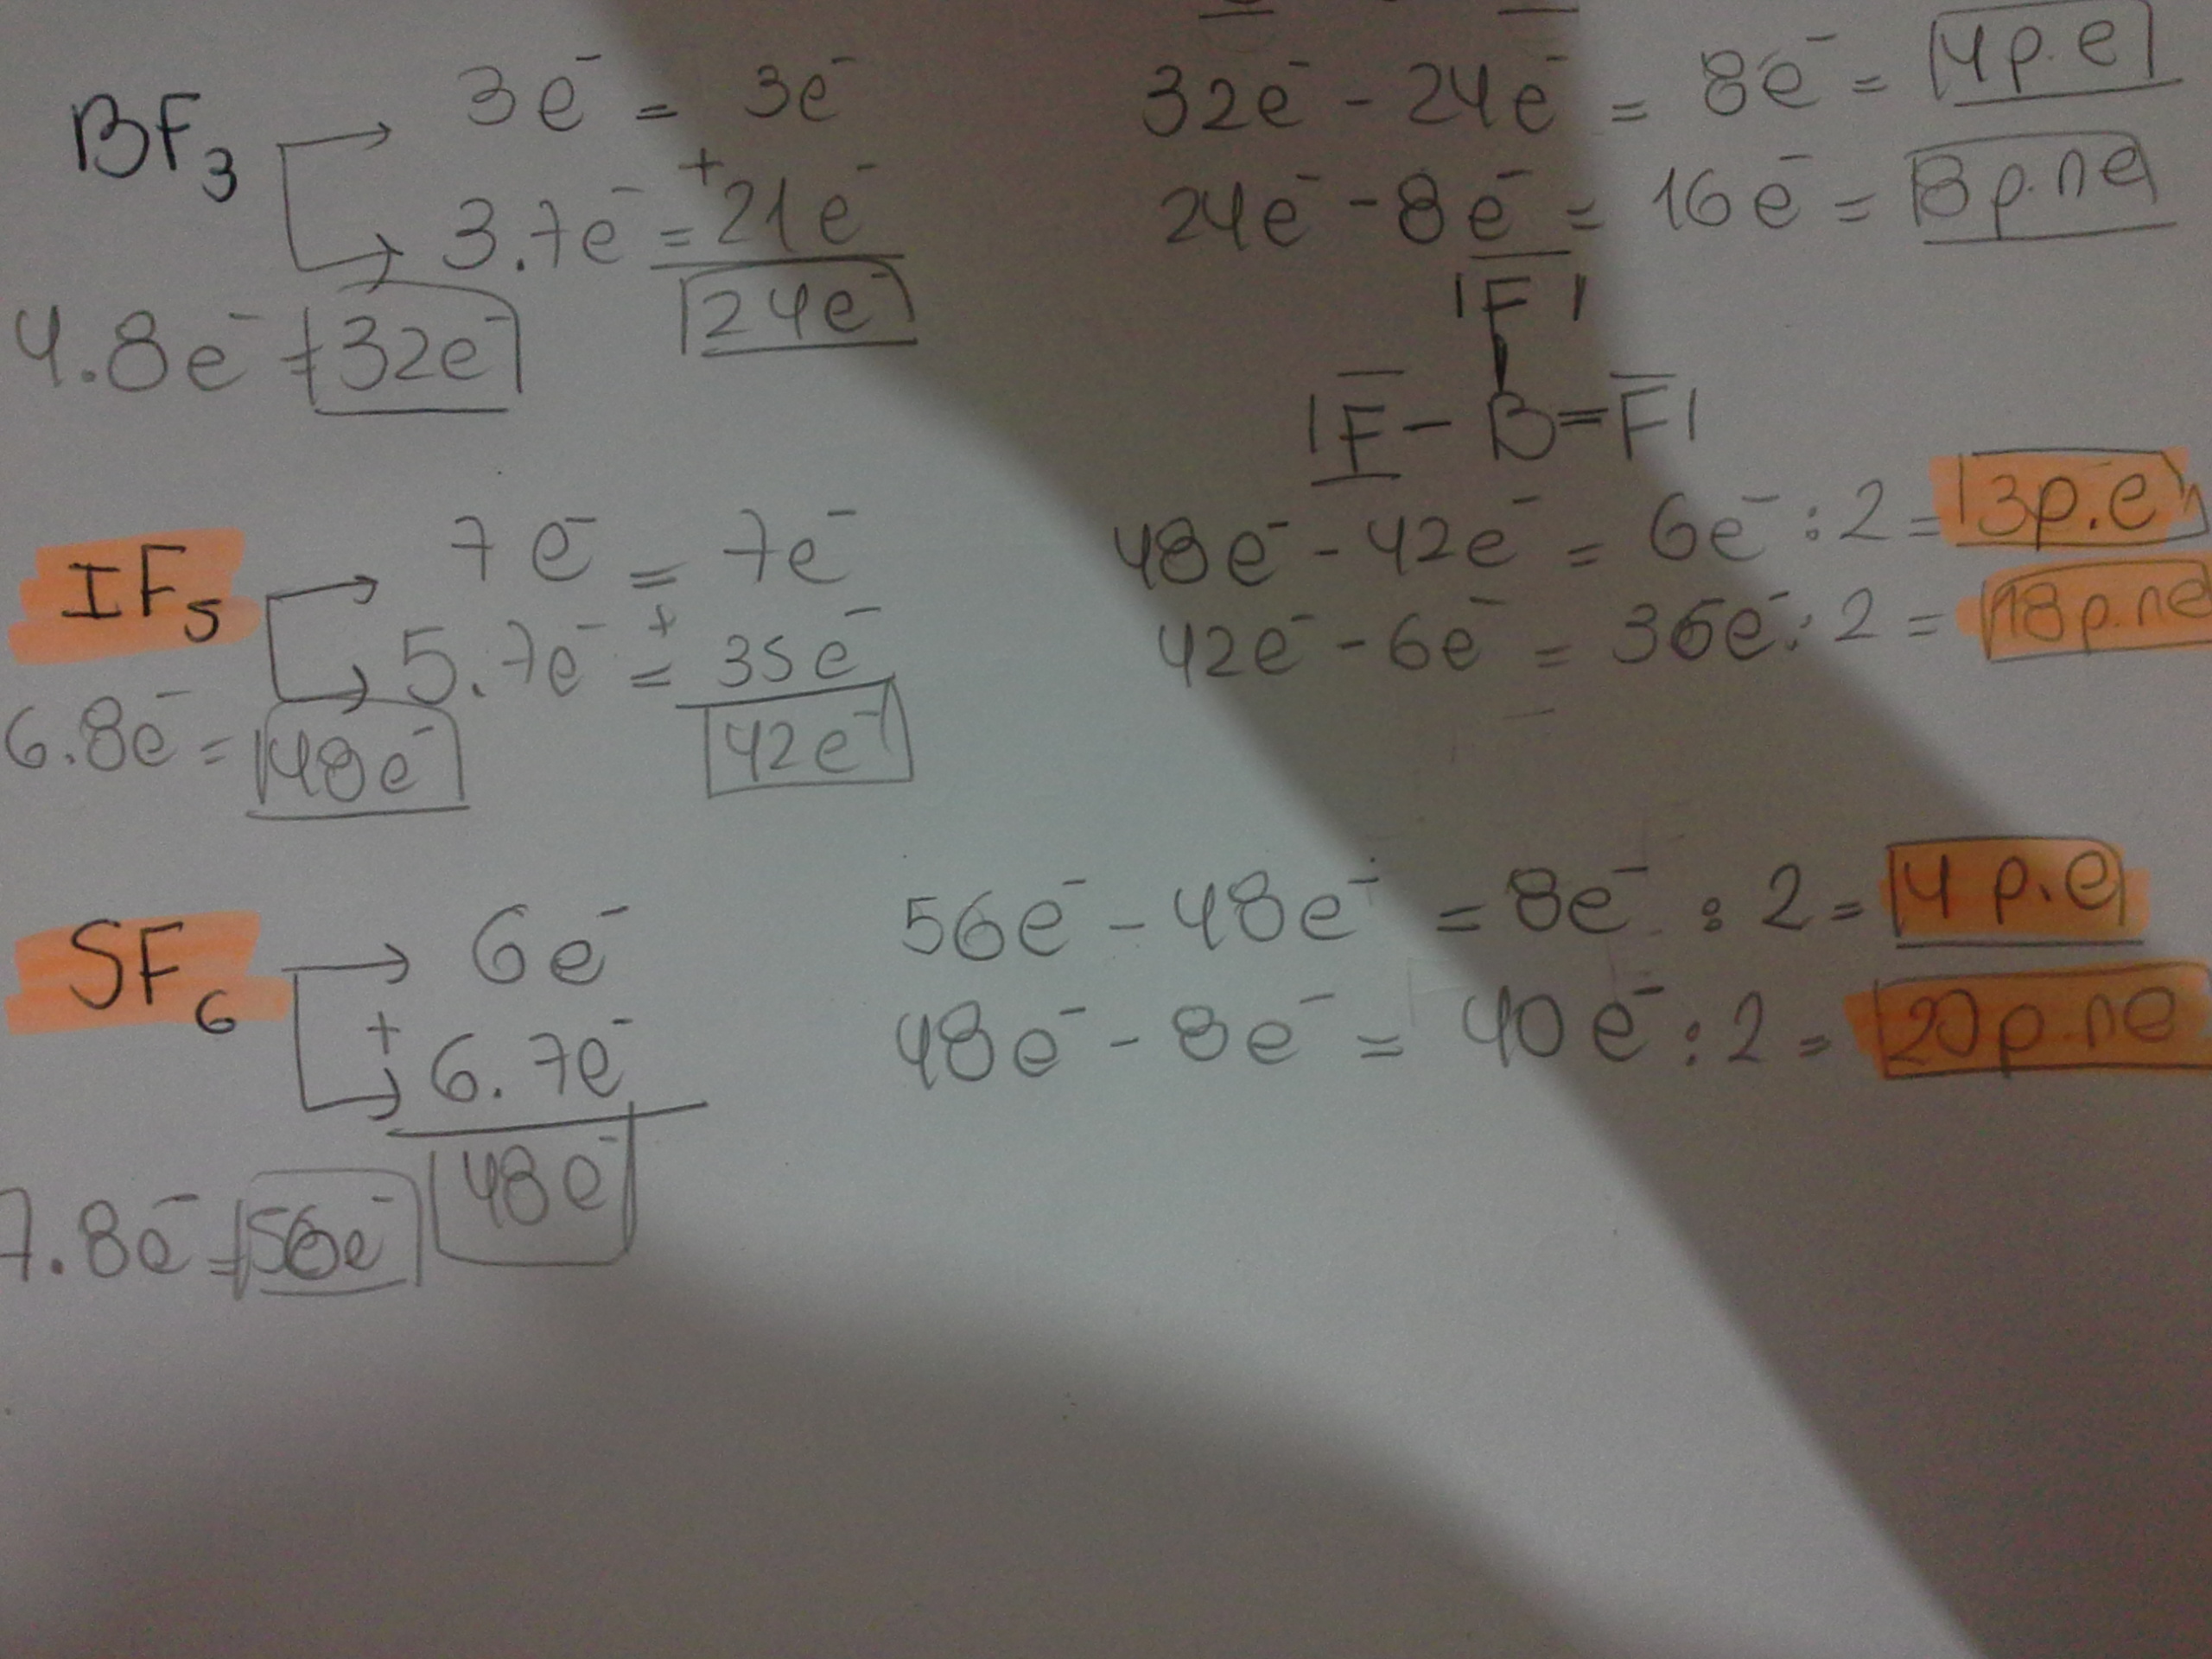 BF₃ → 3e⁻ = 3e⁻
+
→ 3.7e⁻ = 21e⁻
24e⁻
4.8e⁻ = 32e⁻
32e⁻ - 24e⁻ = 8e⁻ = 4p.e
24e⁻ - 8e⁻ = 16e⁻ = 8p.ne
|F|
|F - B = F|
IF₅ → 7e⁻ = 7e⁻
+
→ 5.7e⁻ = 35e⁻
42e⁻
6.8e⁻ = 48e⁻
48e⁻ - 42e⁻ = 6e⁻ : 2 = 3p.e
42e⁻ - 6e⁻ = 36e⁻ : 2 = 18p.ne
SF₆ → 6e⁻
+
→ 6.7e⁻
48e⁻
7.8e⁻ = 56e⁻
56e⁻ - 48e⁻ = 8e⁻ : 2 = 4 p.e
48e⁻ - 8e⁻ = 40e⁻ : 2 = 20p.ne